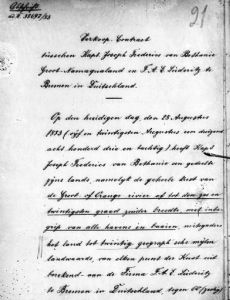 Afschrift
21
Verkoop. Contract
tusschen Kapt. Joseph Frederics van Bethanie
Groot-Namaqualand en F. A. E. Lüderitz te
Bremen in Duitschland.
Op den huidigen dag, den 25. Augustus
1883 (vijf en twintigsten Augustus een duizend
acht honderd drie en tachtig) heeft Kapt.
Joseph Frederics van Bethanie een gedeelte
zijns lands, namelijk de geheele kust van
de Groot- of Orange rivier af tot den zes en
twintigsten graad zuider breedte met inbe-
grip van alle havens en baaien, mitsgaders
het land tot twintig geograph. sche mijlen
landwaards, van elken punt der kust uit
berekend aan de Firma F. A. E. Lüderitz
te Bremen in Duitschland, tegen